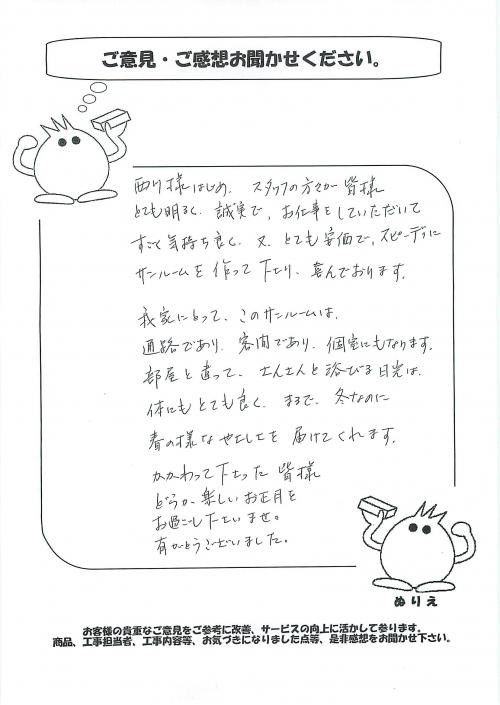 ご意見・ご感想お聞かせください。
西川様はじめ、スタッフの方々が皆様
とても明るく、誠実で、お仕事をしていただいて
すごく気持ち良く、又、とても安価で、スピーディに
サンルームを作って下さり、喜んでおります。
我家にとって、このサンルームは、
通路であり、客間であり、個室にもなります。
部屋と違って、さんさんと浴びる日光は、
体にもとても良く、まるで、冬なのに
春の様なやさしさを届けてくれます。
かかわって下さった皆様
どうか楽しいお正月を
お過ごし下さいませ。
有がとうございました。
ぬりえ
お客様の貴重なご意見をご参考に改善、サービスの向上に活かして参ります。
商品、工事担当者、工事内容等、お気づきになりました点等、是非感想をお聞かせ下さい。